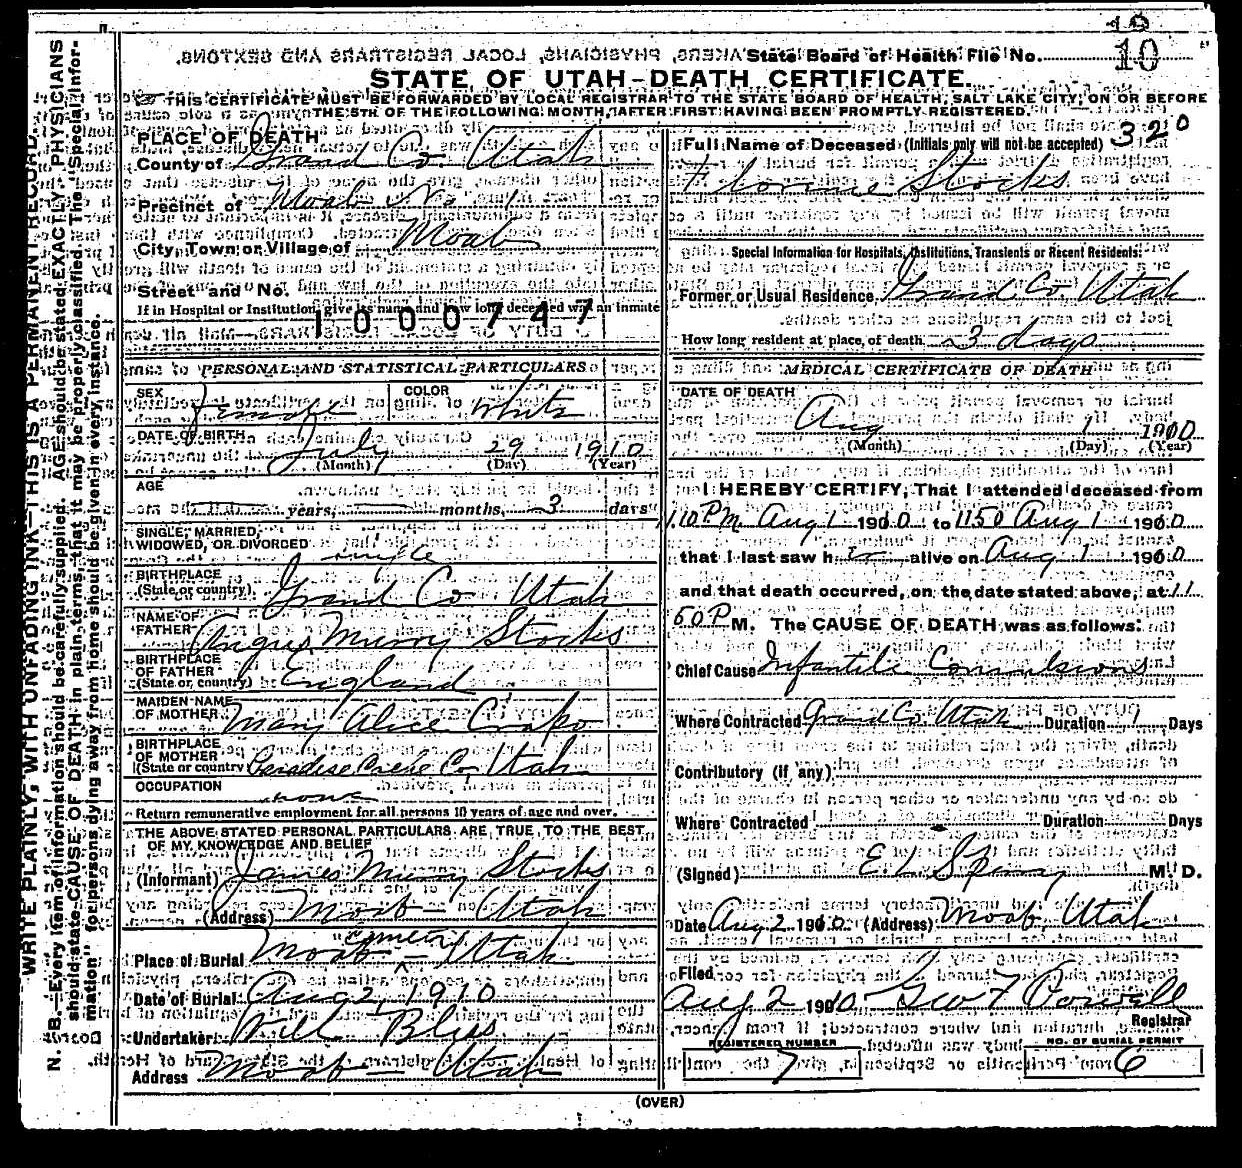 10
State Board of Health File No.
10
STATE OF UTAH-DEATH CERTIFICATE.
THIS CERTIFICATE MUST BE FORWARDED BY LOCAL REGISTRAR TO THE STATE BOARD OF HEALTH, SALT LAKE CITY, ON OR BEFORE
THE 5TH OF THE FOLLOWING MONTH, AFTER FIRST HAVING BEEN PROMPTLY REGISTERED.
WRITE PLAINLY, WITH UNFADING INK-THIS IS A PERMANENT RECORD.
N. B.-Every item of information should be carefully supplied. AGE should be stated EXACTLY. PHYSICIANS
should state CAUSE OF DEATH in plain terms, that it may be properly classified. The "Special Infor-
mation" for persons dying away from home should be given in every instance.
PLACE OF DEATH
County of Grand Co Utah
Precinct of Moab
City, Town or Village of Moab
Street and No.
If in Hospital or Institution, give its name and how long deceased was an inmate
1000747
PERSONAL AND STATISTICAL PARTICULARS
SEX Female COLOR White
DATE OF BIRTH July 29 1910
(Month) (Day) (Year)
AGE
years, months, 3 days
SINGLE, MARRIED,
WIDOWED, OR DIVORCED single
BIRTHPLACE
(State or country) Grand Co. Utah
NAME OF
FATHER Angus Murry Stocks
BIRTHPLACE
OF FATHER
(State or country) England
MAIDEN NAME
OF MOTHER Mary Alice Crapo
BIRTHPLACE
OF MOTHER
(State or country Paradise Cache Co, Utah
OCCUPATION none
Return remunerative employment for all persons 10 years of age and over.
THE ABOVE STATED PERSONAL PARTICULARS ARE TRUE TO THE BEST
OF MY KNOWLEDGE AND BELIEF
(Informant) James Murry Stocks
(Address) Moab - Utah
cemetery
Place of Burial Moab - Utah
Date of Burial Aug 2, 1910
Undertaker Will Bliss
Address Moab - Utah
320
Full Name of Deceased (Initials only will not be accepted)
Florine Stocks
Special Information for Hospitals, Institutions, Transients or Recent Residents:
Former or Usual Residence Grand Co. Utah
How long resident at place of death 3 days
MEDICAL CERTIFICATE OF DEATH
DATE OF DEATH
Aug 1 1910
(Month) (Day) (Year)
I HEREBY CERTIFY, That I attended deceased from
1.10 P.M. Aug 1 1910 to 1150 Aug 1 1910
that I last saw her alive on Aug 1 1910
and that death occurred, on the date stated above, at 11
50 P M. The CAUSE OF DEATH was as follows:
Chief Cause Infantile Convulsions
Where Contracted Grand Co. Utah Duration 1 Days
Contributory (if any)
Where Contracted Duration Days
(Signed) M. D.
Date Aug 2 1910. (Address) Moab, Utah
Filed
Aug 2 1910 Geo F Powell
Registrar
REGISTERED NUMBER NO. OF BURIAL PERMIT
7 6
(OVER)